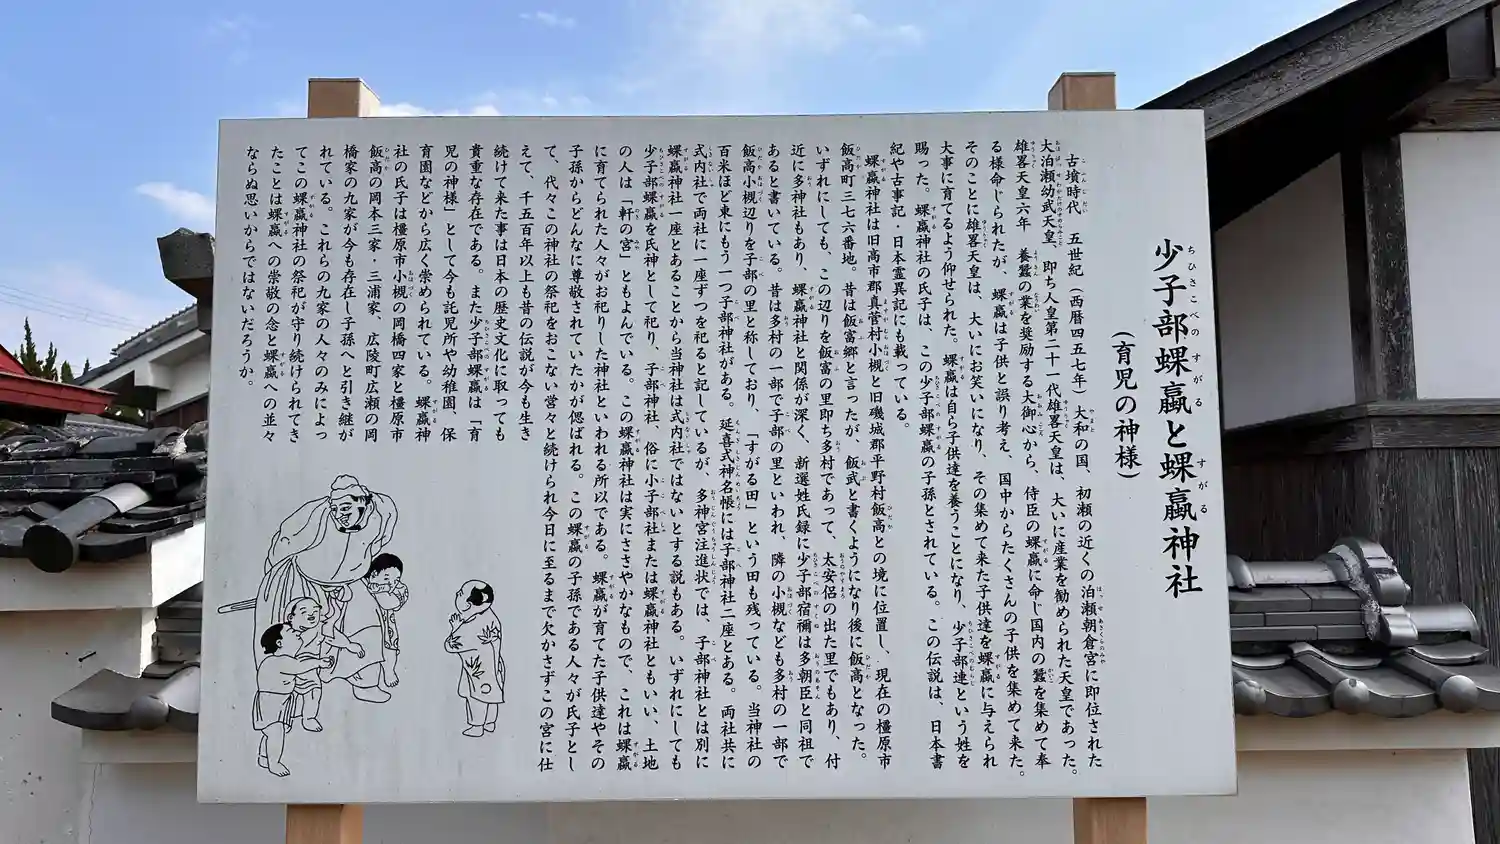 少子部蜾蠃と蜾蠃神社
(育児の神様)
古墳時代 五世紀(西暦四五七年)大和の国、初瀬の近くの泊瀬朝倉宮に即位された
大泊瀬幼武天皇、即ち人皇第二十一代雄畧天皇は、大いに産業を勧められた天皇であった。
雄畧天皇六年 養蚕の業を奨励する大御心から、侍臣の蜾蠃に命じ国内の蚕を集めて奉
る様命じられたが、蜾蠃は子供と誤り考え、国中からたくさんの子供を集めて来た。
そのことに雄畧天皇は、大いにお笑いになり、その集めて来た子供達を蜾蠃に与えられ
大事に育てるよう仰せられた。蜾蠃は自ら子供達を養うことになり、少子部連という姓を
賜った。蜾蠃神社の氏子は、この少子部蜾蠃の子孫とされている。この伝説は、日本書
紀や古事記・日本霊異記にも載っている。
蜾蠃神社は旧高市郡真菅村小槻と旧磯城郡平野村飯高との境に位置し、現在の橿原市
飯高町三七六番地。昔は飯富郷と言ったが、飯武と書くようになり後に飯高となった。
いずれにしても、この辺りを飯富の里即ち多村であって、太安侶の出た里でもあり、付
近に多神社もあり、蜾蠃神社と関係が深く、新選姓氏録に少子部宿禰は多朝臣と同祖で
あると書いている。昔は多村の一部で子部の里といわれ、隣の小槻なども多村の一部で
飯高小槻辺りを子部の里と称しており、「すがる田」という田も残っている。当神社の
百米ほど東にもう一つ子部神社がある。延喜式神名帳には子部神社二座とある。両社共に
式内社で両社に一座ずつを祀ると記しているが、多神宮注進状では、子部神社とは別に
蜾蠃神社一座とあることから当神社は式内社ではないとする説もある。いずれにしても
少子部蜾蠃を氏神として祀り、子部神社 俗に小子部社または蜾蠃神社ともいい、土地
の人は「軒の宮」ともよんでいる。この蜾蠃神社は実にささやかなもので、これは蜾蠃
に育てられた人々がお祀りした神社といわれる所以である。蜾蠃が育てた子供達やその
子孫からどんなに尊敬されていたかが偲ばれる。この蜾蠃の子孫である人々が氏子とし
て、代々この神社の祭祀をおこない営々と続けられ今日に至るまで欠かさずこの宮に仕
えて、千五百年以上も昔の伝説が今も生き
続けて来た事は日本の歴史文化に取っても
貴重な存在である。また少子部蜾蠃は「育
児の神様」として今も託児所や幼稚園、保
育園などから広く崇められている。蜾蠃神
社の氏子は橿原市小槻の岡橋四家と橿原市
飯高の岡本三家・三浦家、広陵町広瀬の岡
橋家の九家が今も存在し子孫へと引き継が
れている。これらの九家の人々のみによっ
てこの蜾蠃神社の祭祀が守り続けられてき
たことは蜾蠃への崇敬の念と蜾蠃への並々
ならぬ思いからではないだろうか。